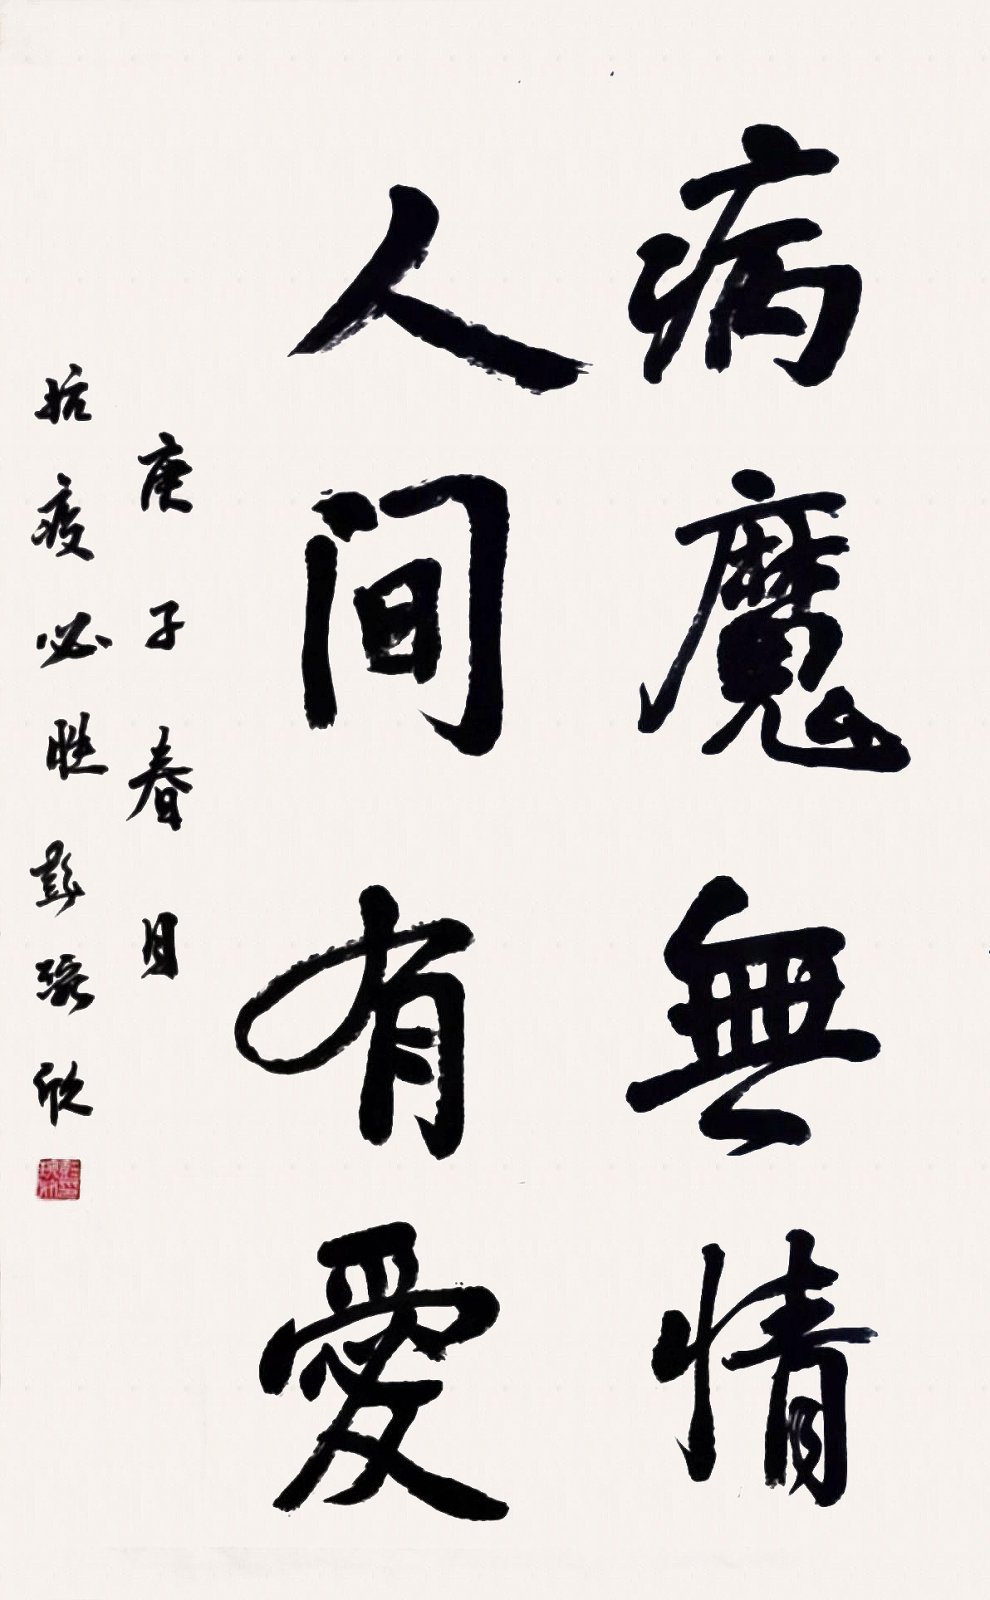 病魔無情
人间有爱
庚子春月
抗疫必胜彭瑞欣